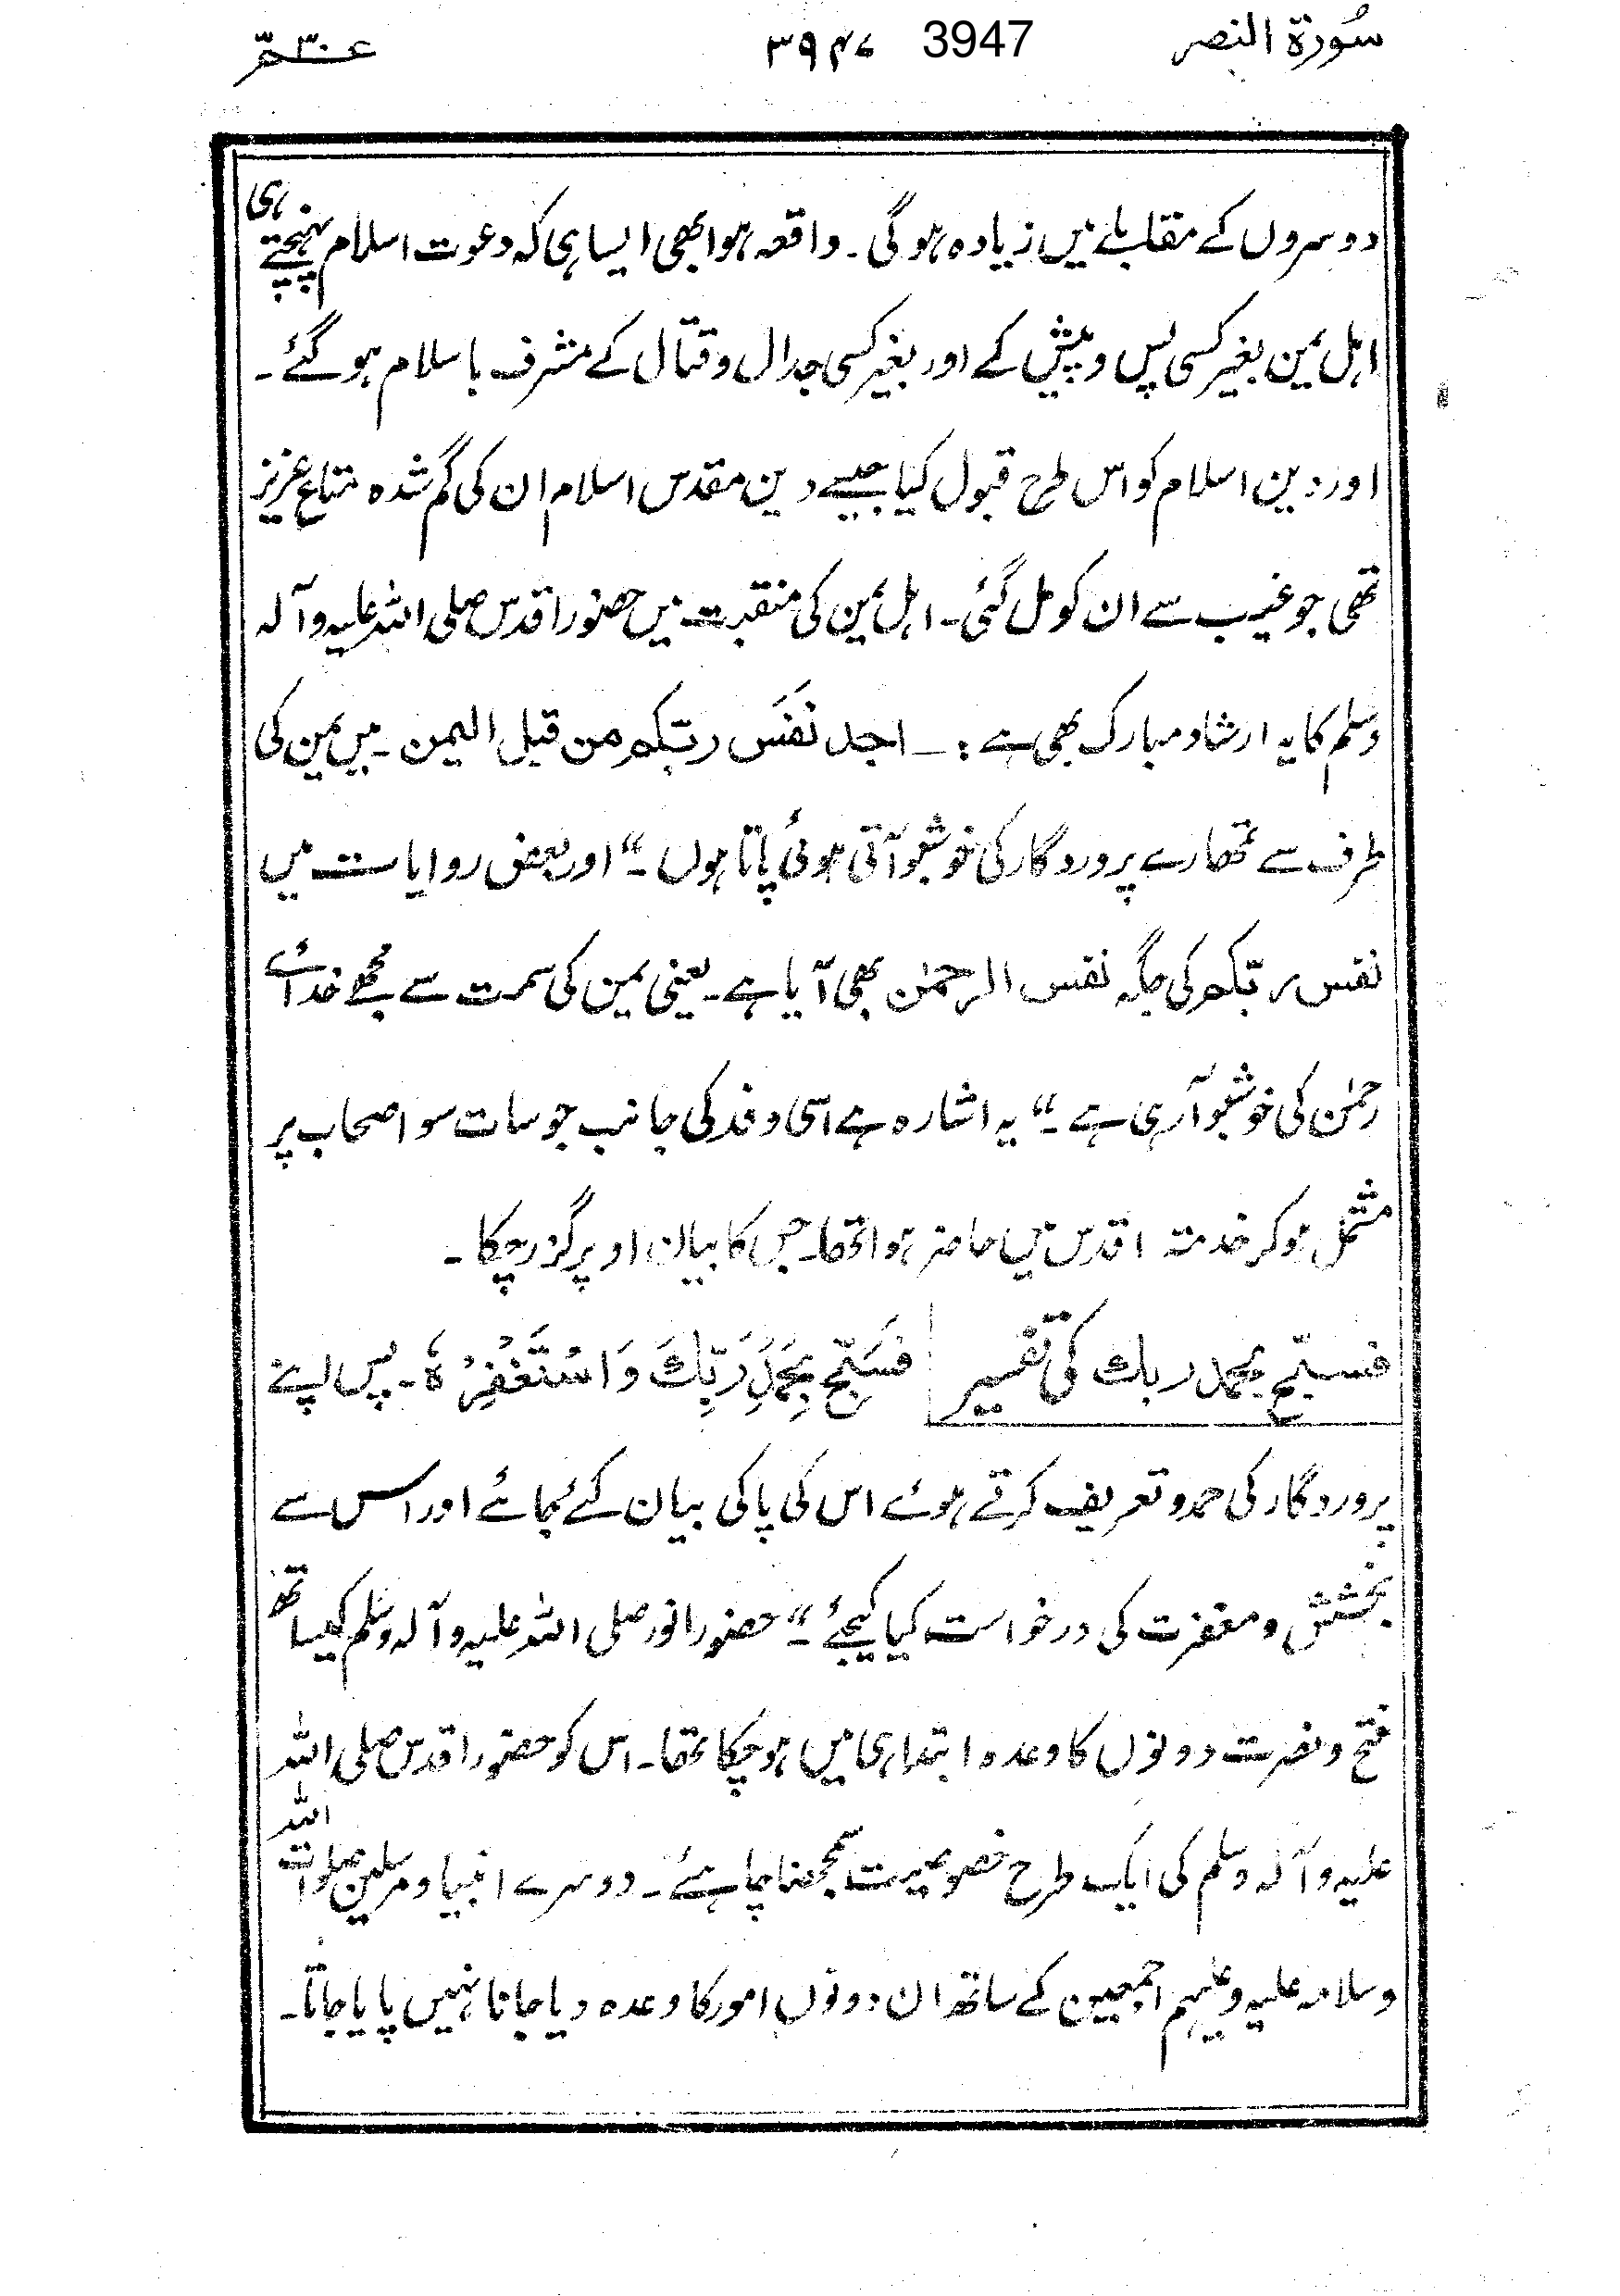 سُورة النصر 3947 ۳۹۴۷ عـم ۳۰
دوسروں کے مقابلے میں زیادہ ہوگی۔ واقعہ ہوا بھی ایسا ہی کہ دعوت اسلام پہنچتے ہی
اہل یمن بغیر کسی پس و پیش کے اور بغیر کسی جدال و قتال کے مشرف باسلام ہوگئے۔
اور دین اسلام کو اس طرح قبول کیا جیسے دین مقدس اسلام ان کی گم شدہ متاع عزیز
تھی جو غیب سے ان کو مل گئی۔ اہل یمن کی منقبت میں حضور اقدس صلی اللہ علیہ وآلہ
وسلم کا یہ ارشاد مبارک بھی ہے :۔ اجد نَفَسَ ربّکم من قبل الیمن۔ میں یمن کی
طرف سے تمھارے پروردگار کی خوشبو آتی ہوئی پاتا ہوں۔“ اور بعض روایات میں
نفس ربّکم کی جگہ نفس الرحمٰن بھی آیا ہے۔ یعنی یمن کی سمت سے مجھے خدائے
رحمٰن کی خوشبو آرہی ہے۔“ یہ اشارہ ہے اسی وفد کی جانب جو سات سو اصحاب پر
مشتمل ہوکر خدمتہ اقدس میں حاضر ہوا تھا۔ جس کا بیان اوپر گزر چکا۔
فسبّح بحمد ربك کی تفسیر فَسَبِّحْ بِحَمْدِ رَبِّكَ وَاسْتَغْفِرْهُ۔ پس اپنے
پروردگار کی حمد و تعریف کرتے ہوئے اس کی پاکی بیان کئے جائے اور اس سے
بخشش و مغفرت کی درخواست کیا کیجئے۔“ حضور انور صلی اللہ علیہ وآلہ وسلم کیساتھ
فتح و نصرت دونوں کا وعدہ ابتدا ہی میں ہوچکا تھا۔ اس کو حضور اقدس صلی اللہ
علیہ وآلہ وسلم کی ایک طرح خصوصیت سمجھنا چاہئے۔ دوسرے انبیا و مرسلین صلوات اللہ
وسلامہ علیہ وعلیہم اجمعین کے ساتھ ان دونوں امور کا وعدہ دیا جانا نہیں پایا جاتا۔